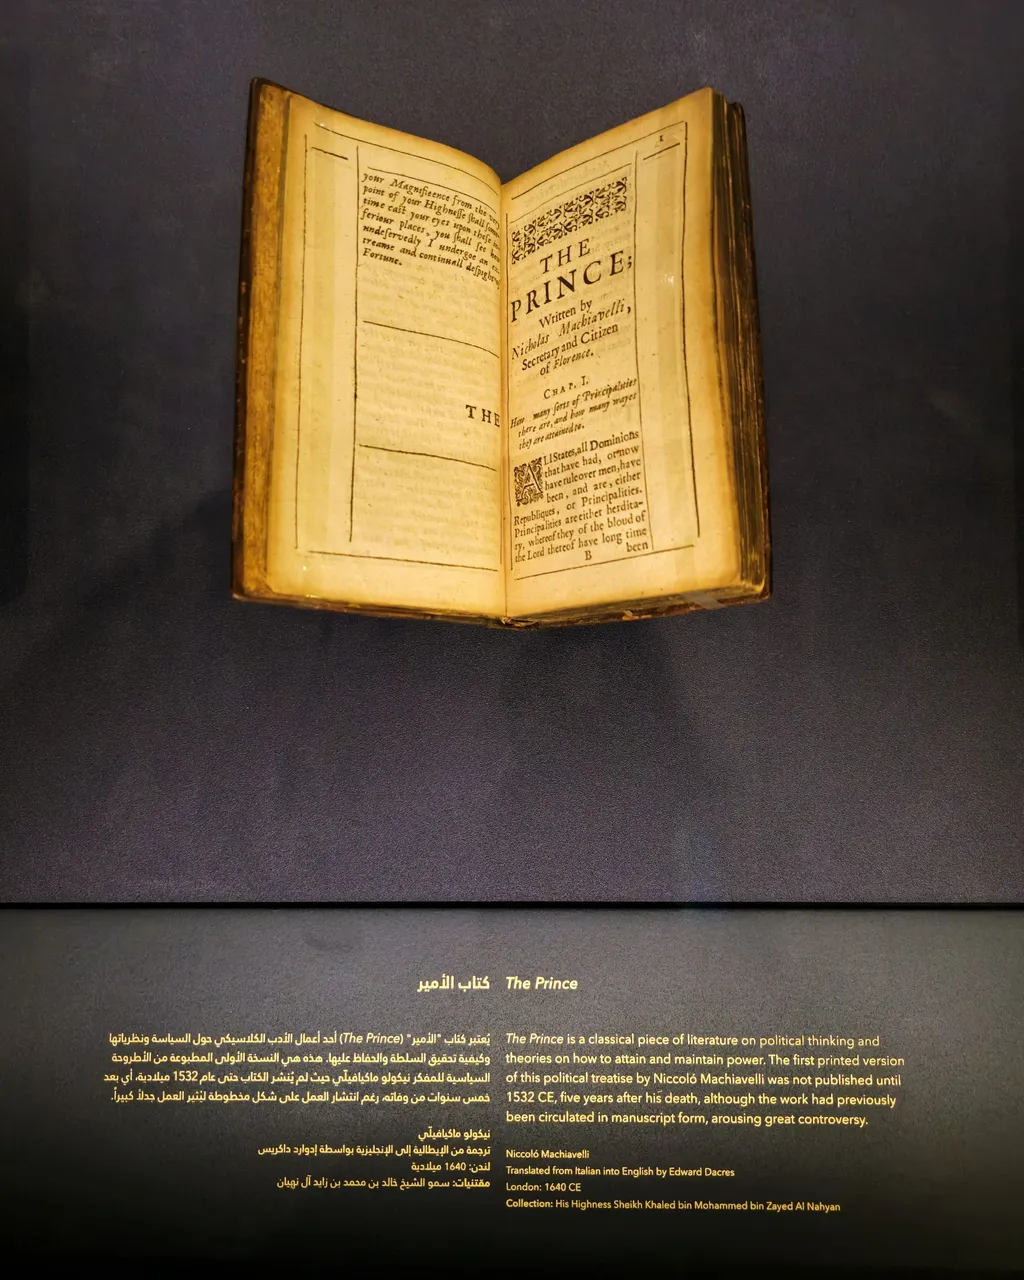 your Magnificence from the very
point of your Highnesse shall some
time cast your eyes upon these in
feriour places, you shall see how
undeservedly I undergoe an ex-
treame and continuall despight of
Fortune.
THE
1
THE
PRINCE;
Written by
Nicholas Machiavelli,
Secretary and Citizen
of Florence.
CHAP. I.
How many sorts of Principalities
there are, and how many wayes
they are attained to.
ALl States, all Dominions
that have had, or now
have rule over men, have
been, and are, either
Republiques, or Principalities.
Principalities are either heredita-
ry, whereof they of the bloud of
the Lord thereof have long time
B been
كتاب الأمير
يُعتبر كتاب "الأمير" (The Prince) أحد أعمال الأدب الكلاسيكي حول السياسة ونظرياتها
وكيفية تحقيق السلطة والحفاظ عليها. هذه هي النسخة الأولى المطبوعة من الأطروحة
السياسية للمفكر نيكولو ماكيافيلّي حيث لم يُنشر الكتاب حتى عام 1532 ميلادية، أي بعد
خمس سنوات من وفاته، رغم انتشار العمل على شكل مخطوطة ليُثير العمل جدلاً كبيراً.
نيكولو ماكيافيلّي
ترجمة من الإيطالية إلى الإنجليزية بواسطة إدوارد داكريس
لندن: 1640 ميلادية
مقتنيات: سمو الشيخ خالد بن محمد بن زايد آل نهيان
The Prince
The Prince is a classical piece of literature on political thinking and
theories on how to attain and maintain power. The first printed version
of this political treatise by Niccoló Machiavelli was not published until
1532 CE, five years after his death, although the work had previously
been circulated in manuscript form, arousing great controversy.
Niccoló Machiavelli
Translated from Italian into English by Edward Dacres
London: 1640 CE
Collection: His Highness Sheikh Khaled bin Mohammed bin Zayed Al Nahyan